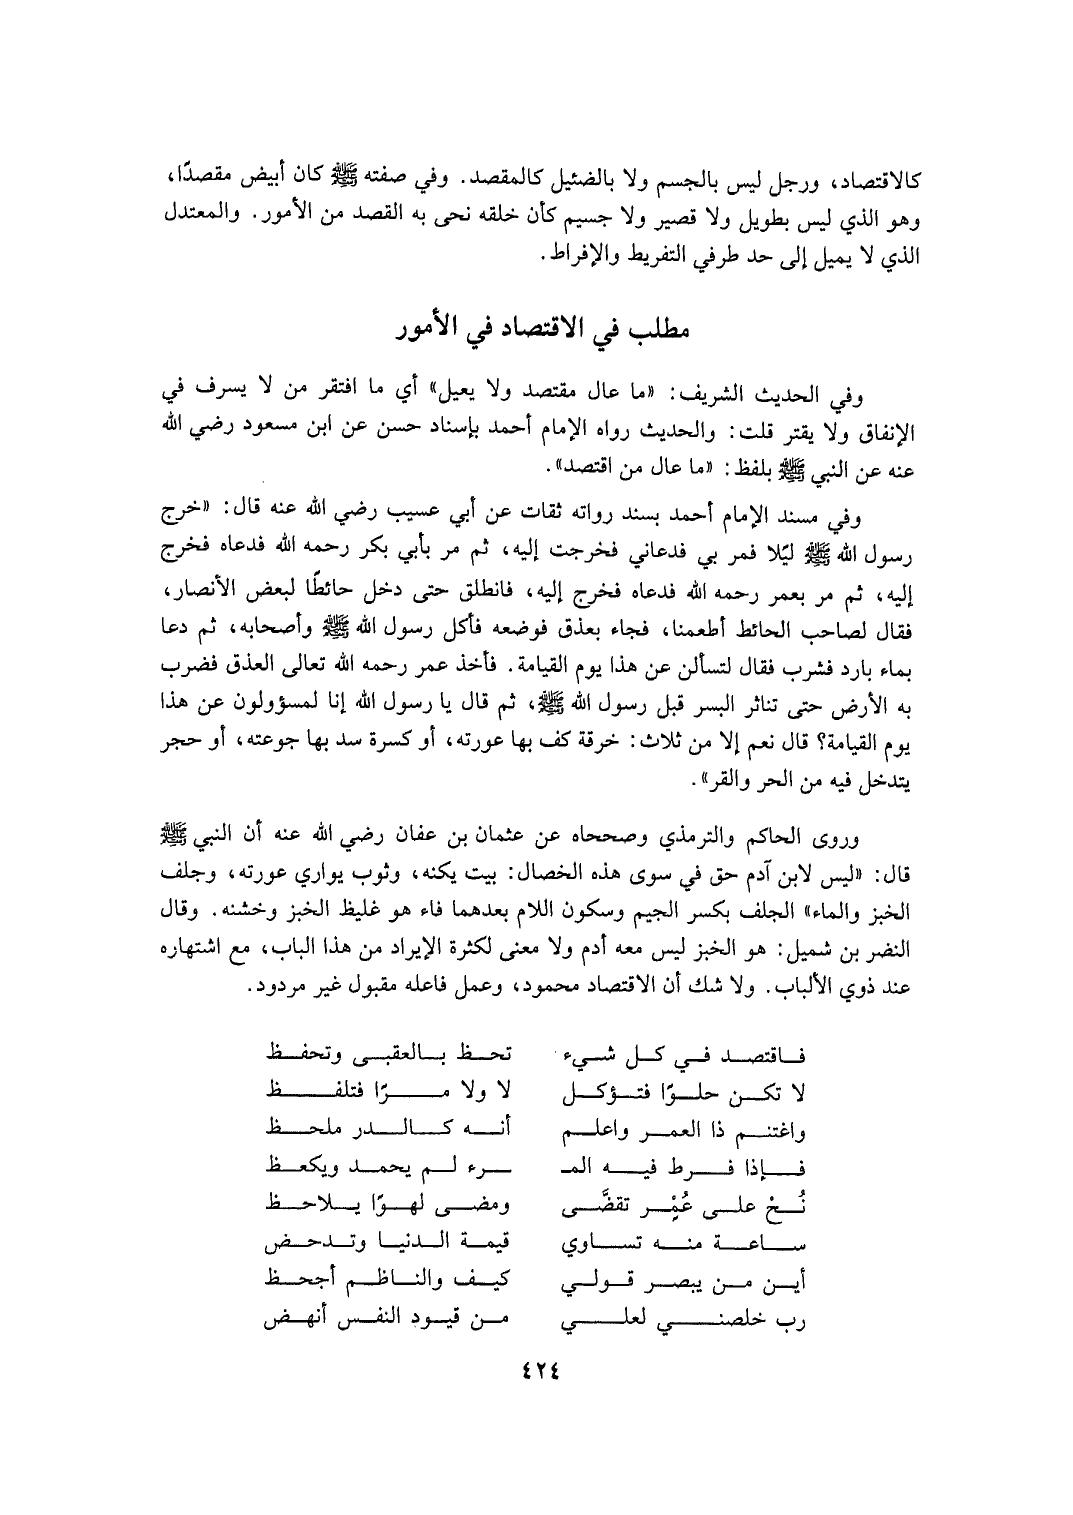 كالاقتصاد، ورجل ليس بالجسم ولا بالضئيل كالمقصد. وفي صفته ﷺ كان أبيض مقصدًا،
وهو الذي ليس بطويل ولا قصير ولا جسيم كأن خلقه نحى به القصد من الأمور. والمعتدل
الذي لا يميل إلى حد طرفي التفريط والإفراط.
مطلب في الاقتصاد في الأمور
وفي الحديث الشريف: «ما عال مقتصد ولا يعيل» أي ما افتقر من لا يسرف في
الإنفاق ولا يقتر قلت: والحديث رواه الإمام أحمد بإسناد حسن عن ابن مسعود رضي الله
عنه عن النبي ﷺ بلفظ: «ما عال من اقتصد».
وفي مسند الإمام أحمد بسند رواته ثقات عن أبي عسيب رضي الله عنه قال: «خرج
رسول الله ﷺ ليًلا فمر بي فدعاني فخرجت إليه، ثم مر بأبي بكر رحمه الله فدعاه فخرج
إليه، ثم مر بعمر رحمه الله فدعاه فخرج إليه، فانطلق حتى دخل حائطًا لبعض الأنصار،
فقال لصاحب الحائط أطعمنا، فجاء بعذق فوضعه فأكل رسول الله ﷺ وأصحابه، ثم دعا
بماء بارد فشرب فقال لتسألن عن هذا يوم القيامة. فأخذ عمر رحمه الله تعالى العذق فضرب
به الأرض حتى تناثر البسر قبل رسول الله ﷺ، ثم قال يا رسول الله إنا لمسؤولون عن هذا
يوم القيامة؟ قال نعم إلا من ثلاث: خرقة كف بها عورته، أو كسرة سد بها جوعته، أو حجر
يتدخل فيه من الحر والقر».
وروى الحاكم والترمذي وصححاه عن عثمان بن عفان رضي الله عنه أن النبي ﷺ
قال: «ليس لابن آدم حق في سوى هذه الخصال: بيت يكنه، وثوب يواري عورته، وجلف
الخبز والماء» الجلف بكسر الجيم وسكون اللام بعدهما فاء هو غليظ الخبز وخشنه. وقال
النضر بن شميل: هو الخبز ليس معه أدم ولا معنى لكثرة الإيراد من هذا الباب، مع اشتهاره
عند ذوي الألباب. ولا شك أن الاقتصاد محمود، وعمل فاعله مقبول غير مردود.
فاقتصد في كل شيء تحظ بالعقبى وتحفظ
لا تكن حلوًا فتؤكل لا ولا مرًا فتلفظ
واغتنم ذا العمر واعلم أنه كالدر ملحظ
فإذا فرط فيه المـ ـرء لم يحمد ويكعظ
نُحْ على عُمْرٍ تقضَّى ومضى لهوًا يلاحظ
ساعة منه تساوي قيمة الدنيا وتدحض
أين من يبصر قولي كيف والناظم أجحظ
رب خلصني لعلي من قيود النفس أنهض
٤٢٤